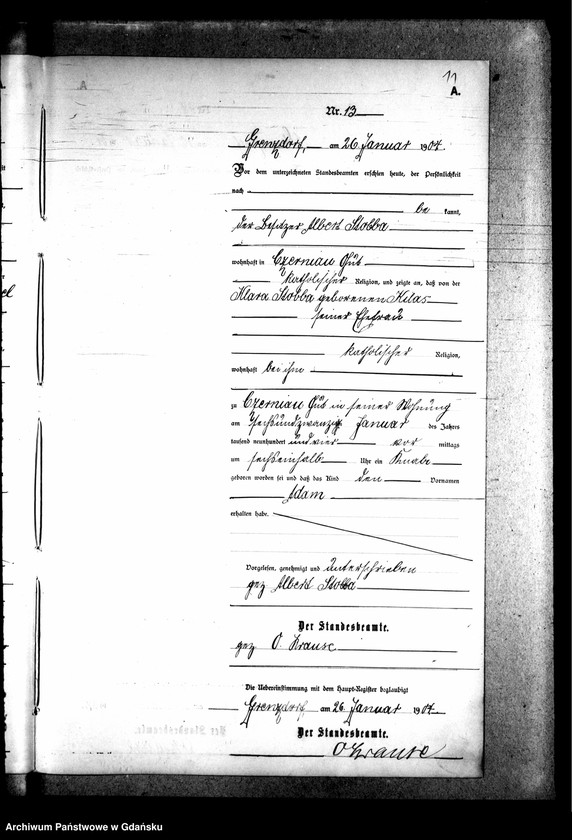 11
A.
Nr. 13
Grenzdorf, am 26 Januar 1904.
Vor dem unterzeichneten Standesbeamten erschien heute, der Persönlichkeit
nach
be kannt,
der Besitzer Albert Stobba
wohnhaft in Czerniau Gut
katholischer Religion, und zeigte an, daß von der
Klara Stobba geborenen Kilas
seiner Ehefrau
katholischer Religion,
wohnhaft bei ihm
zu Czerniau Gut in seiner Wohnung
am sechsundzwanzig Januar des Jahres
tausend neunhundert und vier vor mittags
um sechseinhalb Uhr ein Knabe
geboren worden sei und daß das Kind den Vornamen
Adam
erhalten habe.
Vorgelesen, genehmigt und unterschrieben
gez Albert Stobba
Der Standesbeamte.
gez O. Krause
Die Uebereinstimmung mit dem Haupt-Register beglaubigt
Grenzdorf am 26. Januar 1904.
Der Standesbeamte.
O Krause
Archiwum Państwowe w Gdańsku